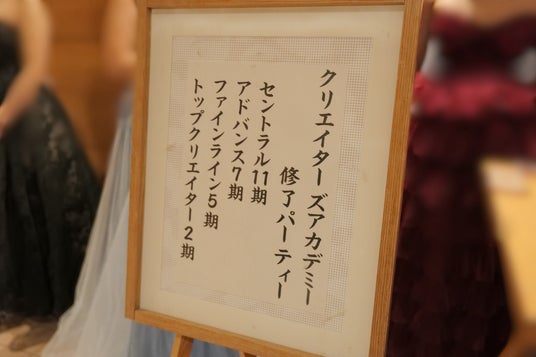 クリエイターズアカデミー
修了パーティー
セントラル11期
アドバンス7期
ファインライン5期
トップクリエイター2期